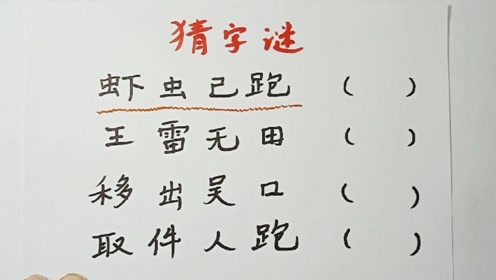 猜字谜
虾虫己跑 ( )
王雷无田 ( )
移出吴口 ( )
取件人跑 ( )